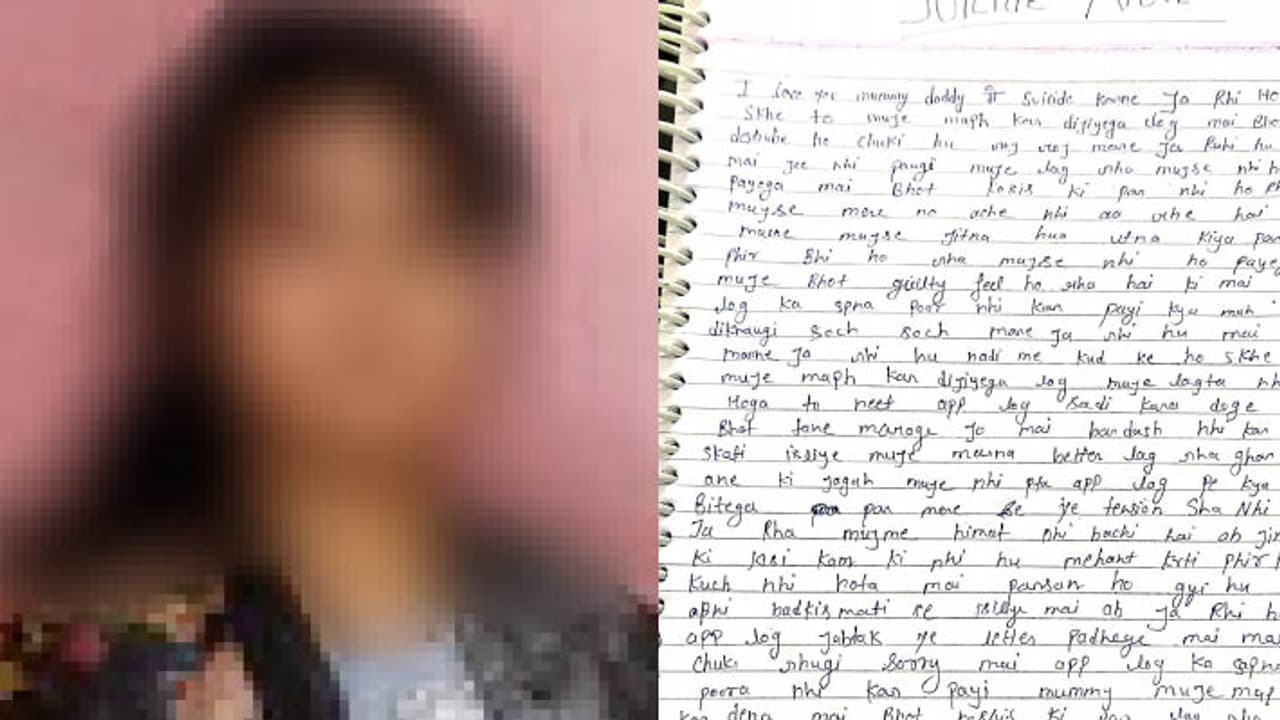 SUICIDE
I love you mummy daddy मैं Suicide karne Ja Rhi Ho
Skhe to muje maph kar dijiyega log mai Bhot
ho chuki hu roj roj marne Ja Rahi hu
mai jee nhi paugi muje lag rha mujse nhi h
Payega mai Bhot kosis ki par nhi ho
mujse mere no ache nhi aa rhe hai
maine mujse jitna hua utna kiya par
phir Bhi ho rha mujse nhi ho paye
muje Bhot guilty feel ho rha hai ki mai
log ka spna poor nhi kar payi kya muh
dikhaugi Soch soch marne Ja rhi hu mai
marne Ja rhi hu nadi me kud ke ho skhe
muje maph kar dijiyega log muje lagta nh
Hoga to neet app log sadi kara doge
Bhot tane maroge Jo mai bardash nhi kar
skati isliye muje marna better lag rha ghar
ane ki jagah muje nhi pta app log pe kya
Bitega par mere se ye tension Sha Nhi
Ja Rha mujme himat nhi bachi hai ab
ki kasi kam ki nhi hu mehant krti phir
Kuch nhi hota mai parsan ho gyi hu
aphi badkismati se isliye mai ab Ja Rhi h
app log Jabtak ye letter padhege mai mar
Chuki rhugi Soory mai app log ka sapna
poora nhi kar payi mummy muje map
kar dena mai Bhot ki